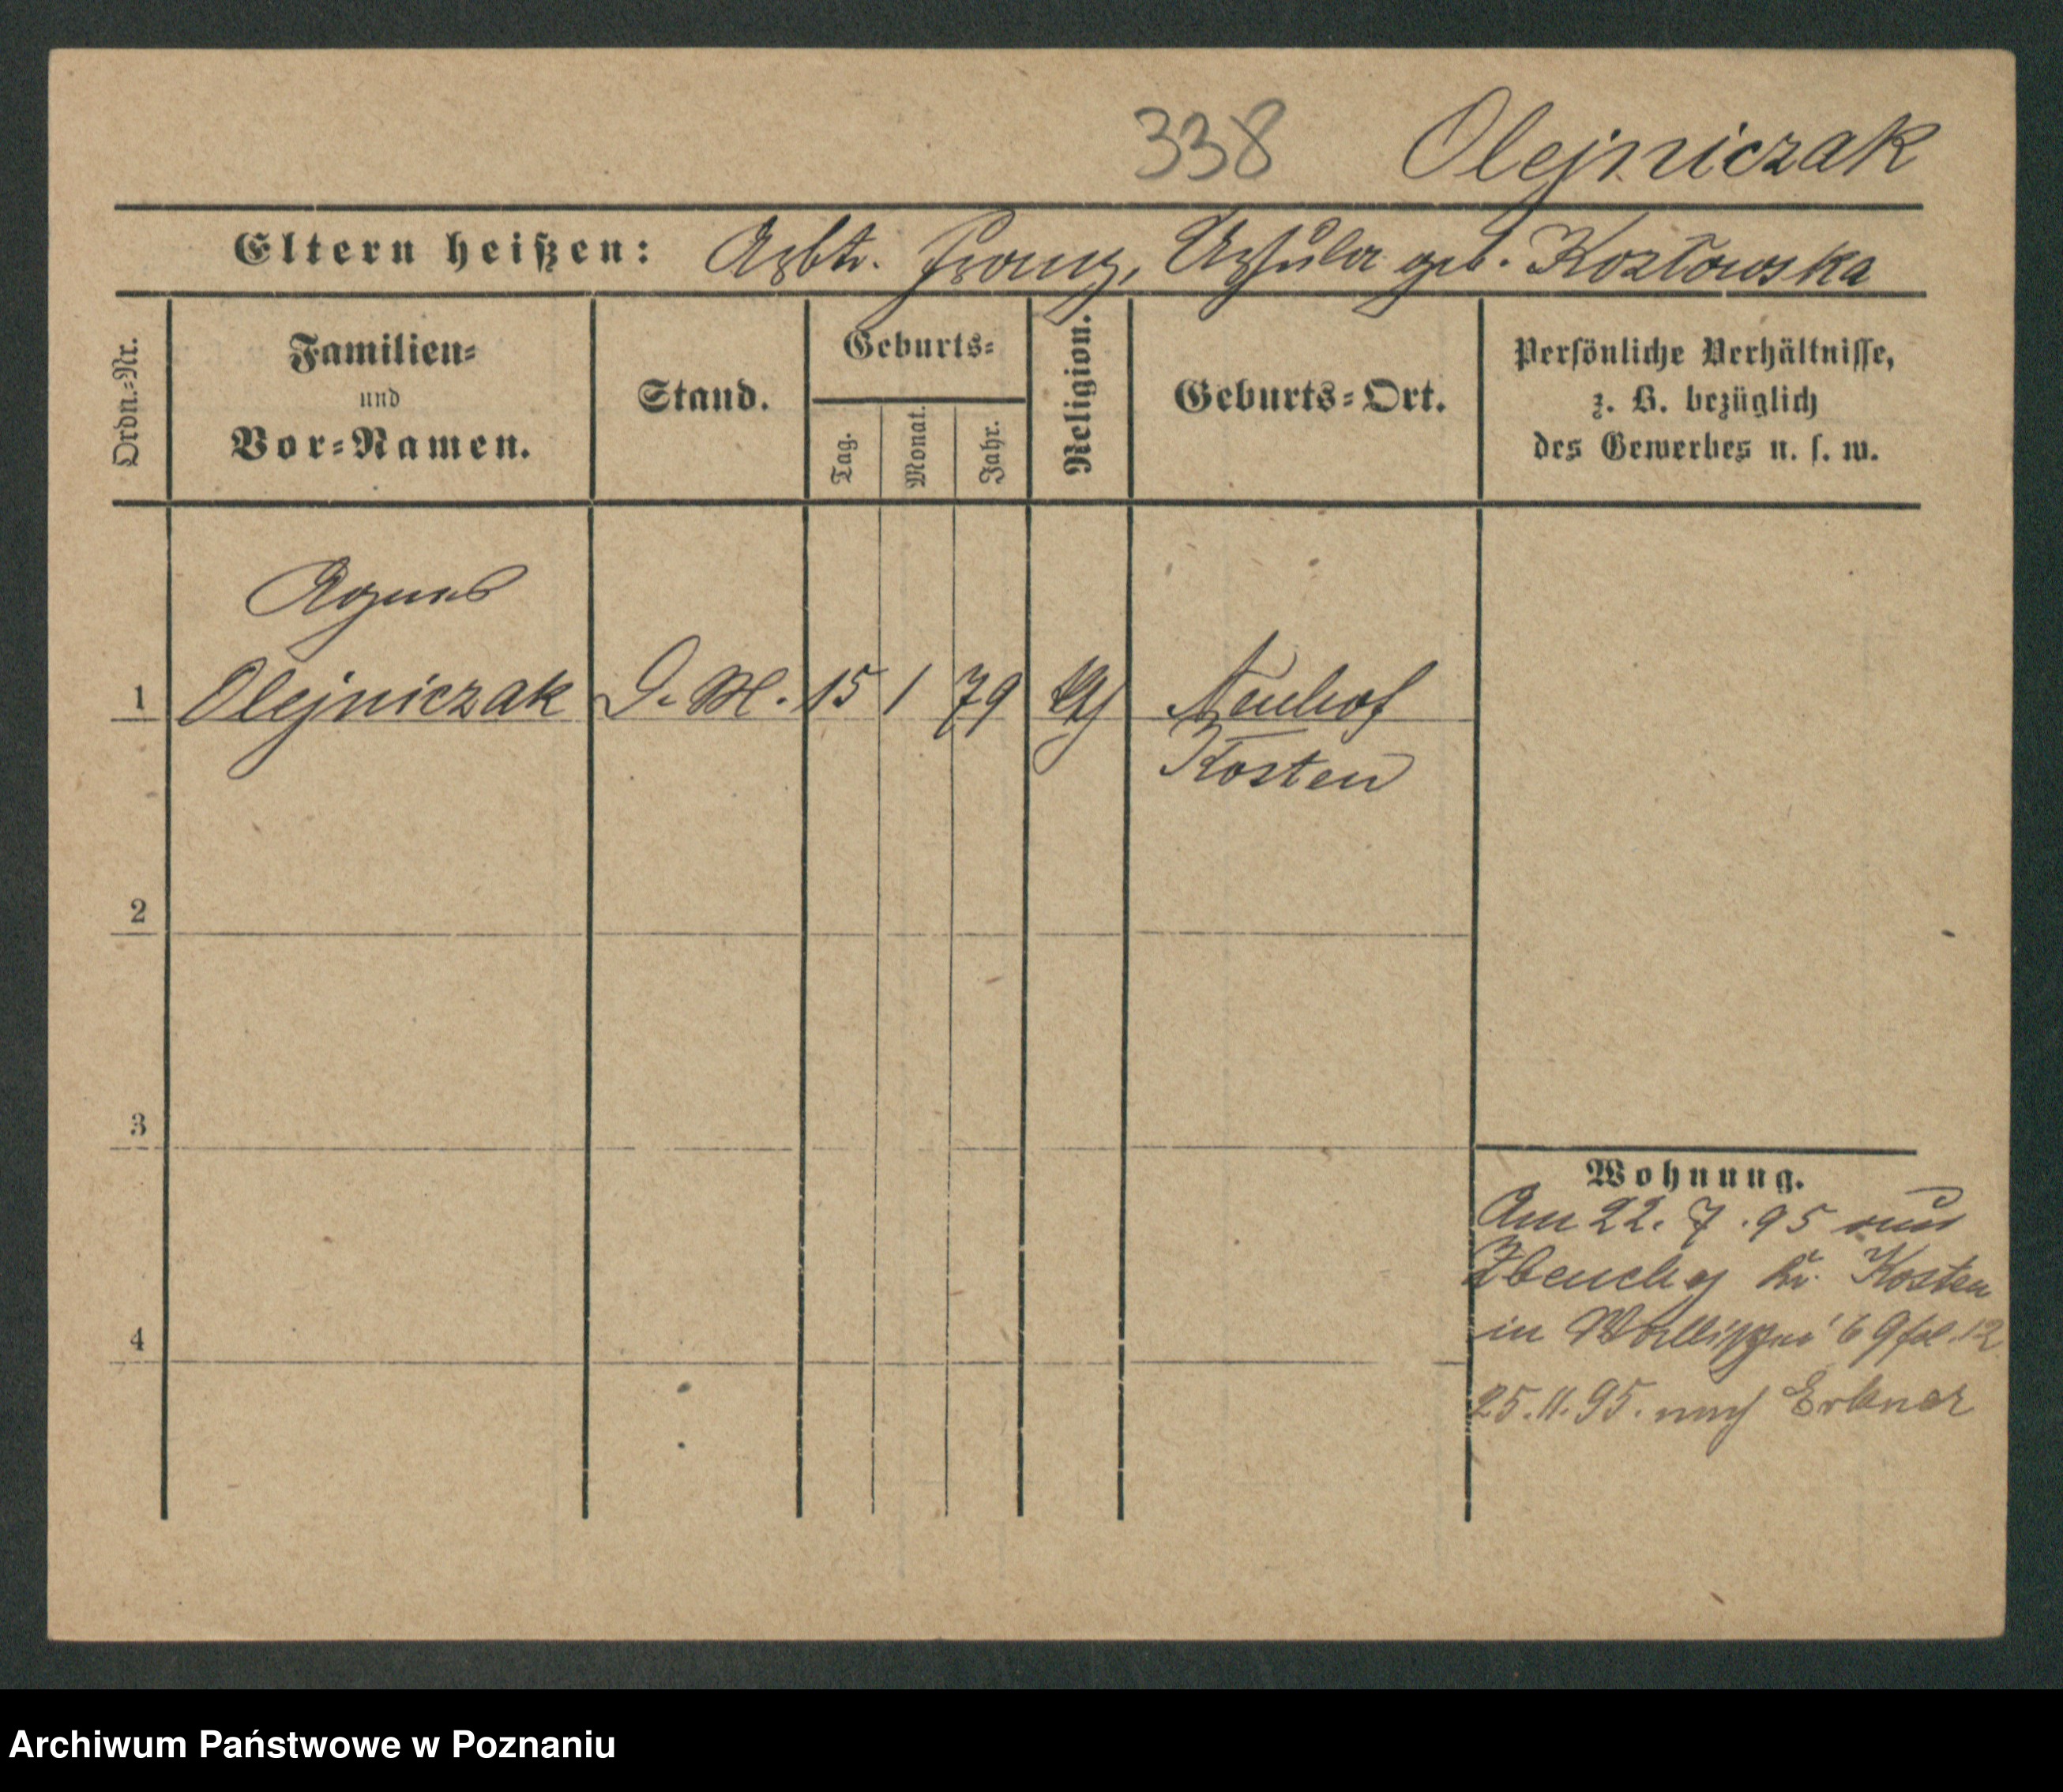 338 Olejniczak
Eltern heißen: Arbtr. Franz, Ursula geb. Kozłowska
Ordn.-Nr.
Familien-
und
Vor-Namen.
Stand.
Geburts-
Tag.
Monat.
Jahr.
Religion.
Geburts-Ort.
Persönliche Verhältnisse,
z. B. bezüglich
des Gewerbes u. s. w.
Agnes
1 Olejniczak D. M. 15 1 79 Neuhof
Kosten
2
3
4
Wohnung.
Am 22. 7. 95 aus
Zbenchy Kr. Kosten
in 6
25.11.95. nach Erkner
Archiwum Państwowe w Poznaniu